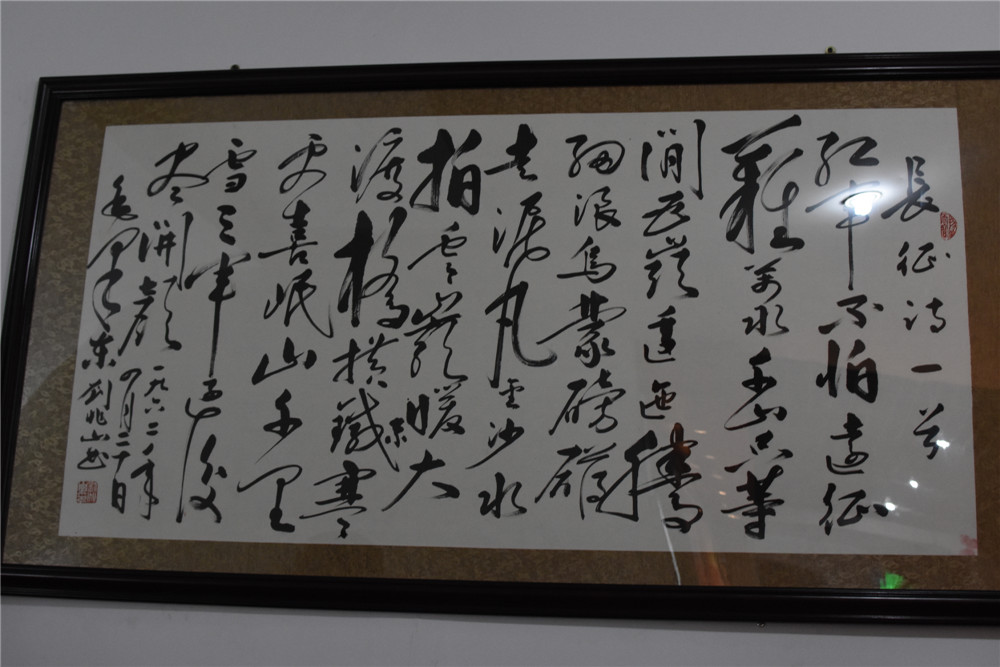 長征诗一首
红军不怕远征
難万水千山只等
闲五嶺逶迤腾
细浪乌蒙磅礴
走泥丸金沙水
拍云崖暖大
渡桥横鐵索寒
更喜岷山千里
雪三军过后
尽開颜
一九六二年
四月二十日
毛泽东
刘兆山书